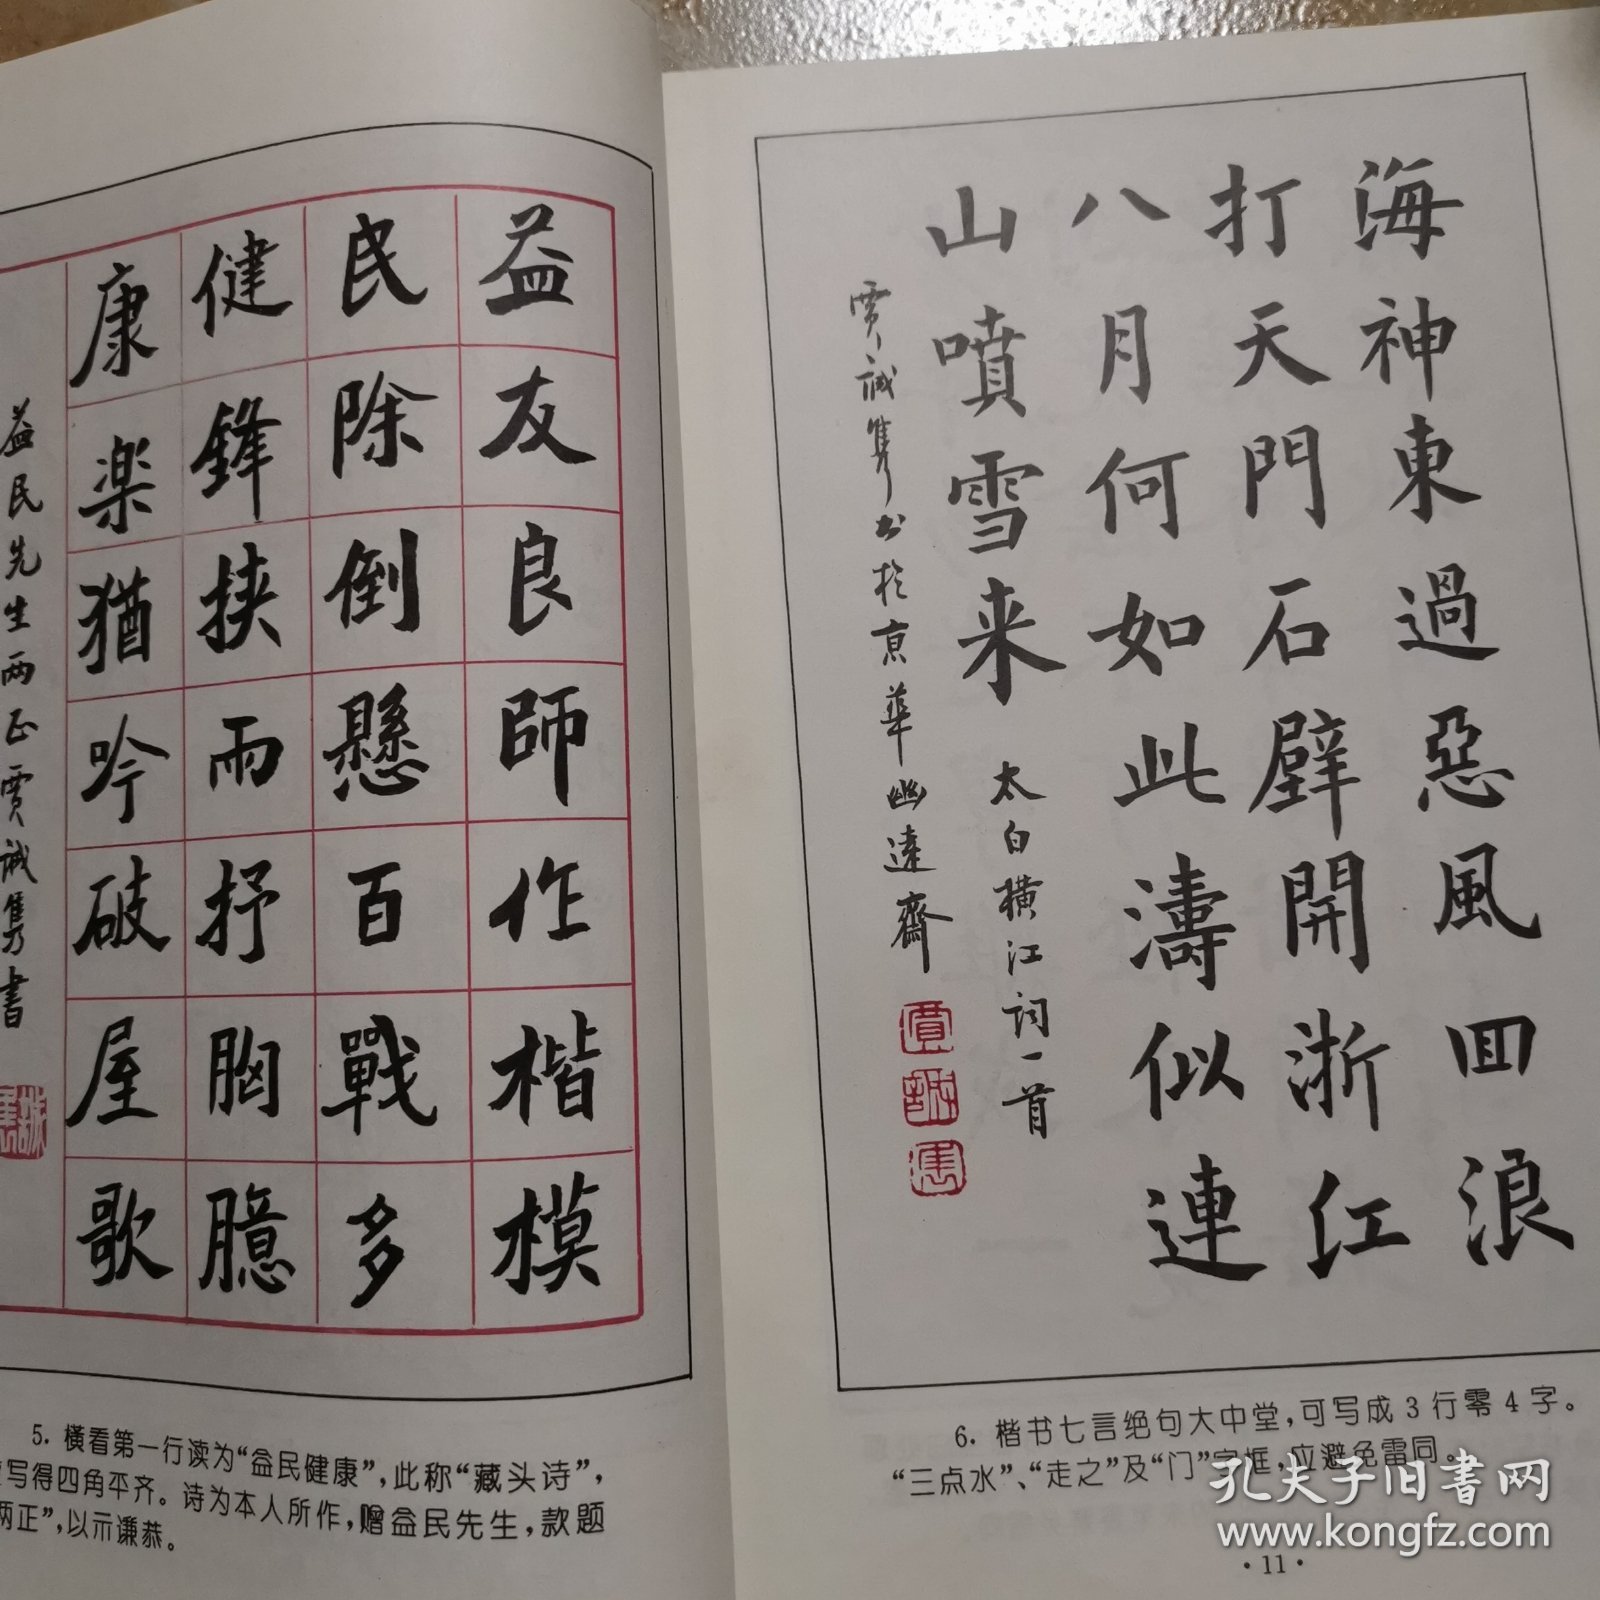 益友良師作楷模
民除倒懸百戰多
健鋒挟雨抒胸臆
康楽猶吟破屋歌
益民先生两正賈誠隽書
5. 横看第一行读为“益民健康”，此称“藏头诗”，
写得四角平齐。诗为本人所作，赠益民先生，款题
两正”，以示谦恭。
海神東過惡風回浪
打天門石壁開浙江
八月何如此濤似連
山噴雪来
太白横江词一首
賈誠隽书於京華幽遠齋
賈誠隽
6. 楷书七言绝句大中堂，可写成3行零4字。
“三点水”、“走之”及“门”字框，应避免雷同。
·11·
孔夫子旧书网
www.kongfz.com